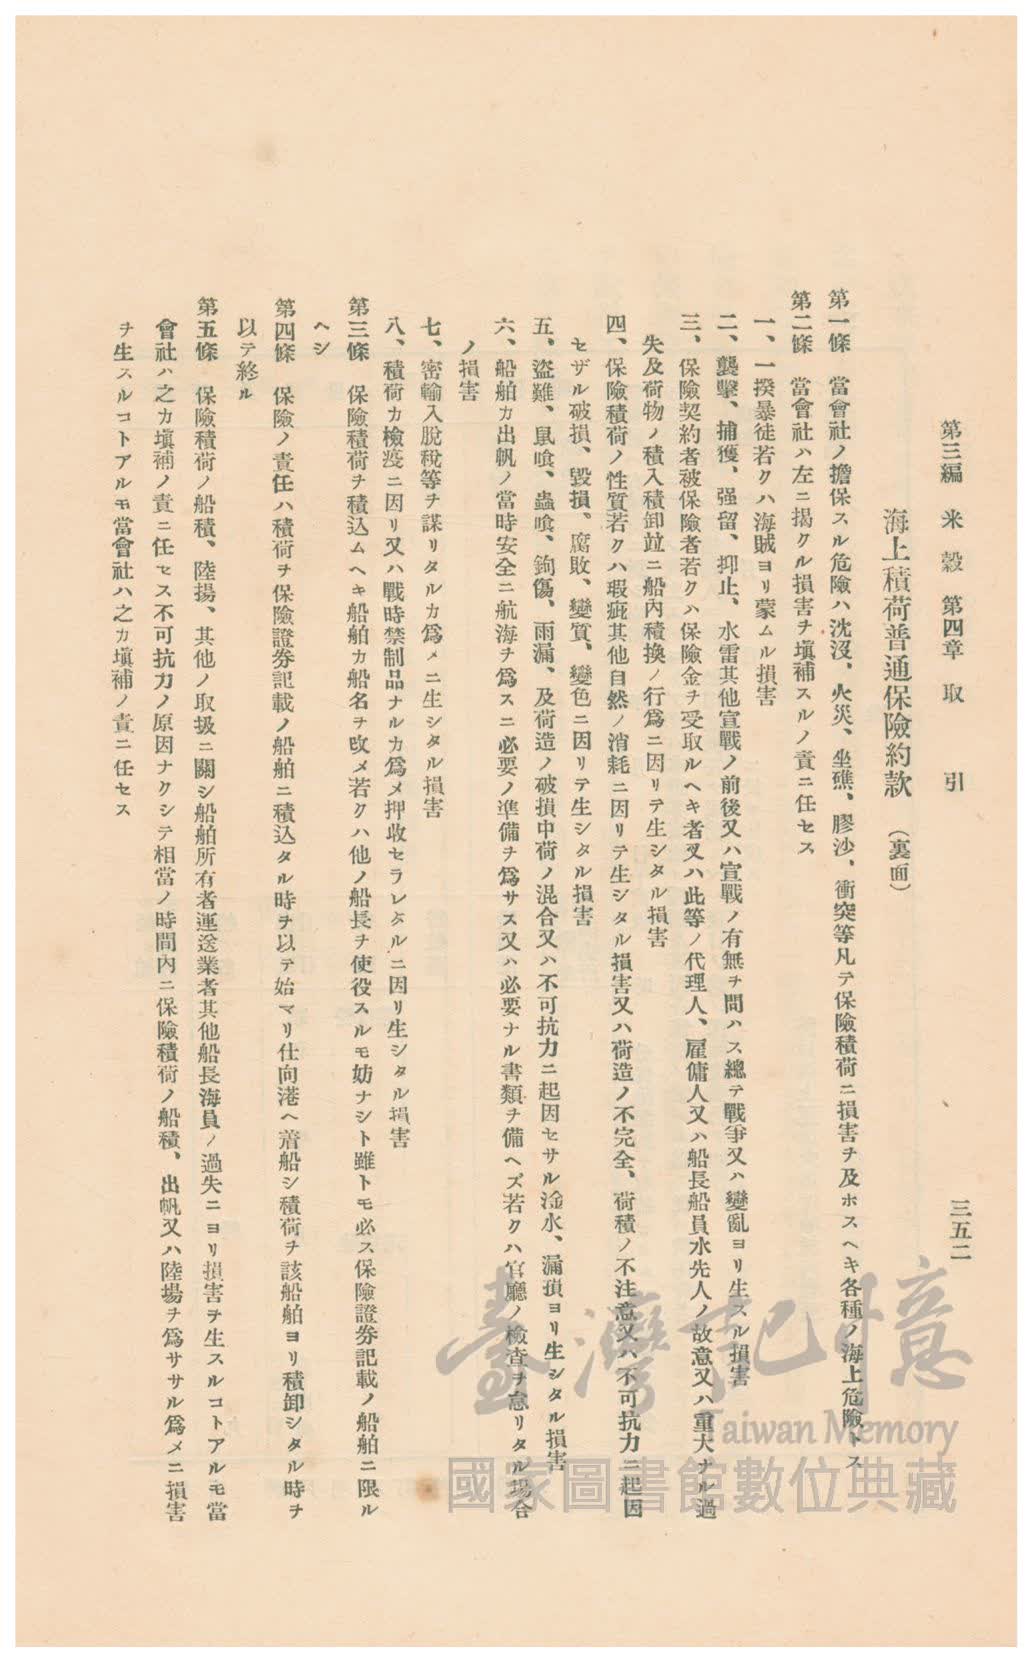 第三編　米穀　第四章　取引　三五二
海上積荷普通保險約款（裏面）
第一條　當會社ノ擔保スル危險ハ沈沒、火災、坐礁、膠沙、衝突等凡テ保險積荷ニ損害ヲ及ホスヘキ各種ノ海上危險トス
第二條　當會社ハ左ニ揭クル損害ヲ塡補スルノ責ニ任セス
一、一揆暴徒若クハ海賊ヨリ蒙ムル損害
二、襲擊、捕獲、强留、抑止、水雷其他宣戰ノ前後又ハ宣戰ノ有無ヲ問ハス總テ戰爭又ハ變亂ヨリ生スル損害
三、保險契約者被保險者若クハ保險金ヲ受取ルヘキ者又ハ此等ノ代理人、雇傭人又ハ船長船員水先人ノ故意又ハ重大ナル過
失及荷物ノ積入積卸竝ニ船內積換ノ行爲ニ因リテ生シタル損害
四、保險積荷ノ性質若クハ瑕疵其他自然ノ消耗ニ因リテ生シタル損害又ハ荷造ノ不完全、荷積ノ不注意又ハ不可抗力ニ起因
セザル破損、毀損、腐敗、變質、變色ニ因リテ生シタル損害
五、盜難、鼠喰、蟲喰、鉤傷、雨漏、及荷造ノ破損中荷ノ混合又ハ不可抗力ニ起因セサル淦水、漏損ヨリ生シタル損害
六、船舶カ出帆ノ當時安全ニ航海ヲ爲スニ必要ノ準備ヲ爲サス又ハ必要ナル書類ヲ備ヘズ若クハ官廳ノ檢查ヲ怠リタル場合
ノ損害
七、密輸入脫稅等ヲ謀リタルカ爲メニ生シタル損害
八、積荷カ檢疫ニ因リ又ハ戰時禁制品ナルカ爲メ押收セラレタルニ因リ生シタル損害
第三條　保險積荷ヲ積込ムヘキ船舶カ船名ヲ改メ若クハ他ノ船長ヲ使役スルモ妨ナシト雖トモ必ス保險證券記載ノ船舶ニ限ル
ヘシ
第四條　保險ノ責任ハ積荷ヲ保險證券記載ノ船舶ニ積込タル時ヲ以テ始マリ仕向港ヘ着船シ積荷ヲ該船舶ヨリ積卸シタル時ヲ
以テ終ル
第五條　保險積荷ノ船積、陸揚、其他ノ取扱ニ關シ船舶所有者運送業者其他船長海員ノ過失ニヨリ損害ヲ生スルコトアルモ當
會社ハ之カ塡補ノ責ニ任セス不可抗力ノ原因ナクシテ相當ノ時間內ニ保險積荷ノ船積、出帆又ハ陸場ヲ爲ササル爲メニ損害
ヲ生スルコトアルモ當會社ハ之カ塡補ノ責ニ任セス
臺灣記憶
Taiwan Memory
國家圖書館數位典藏